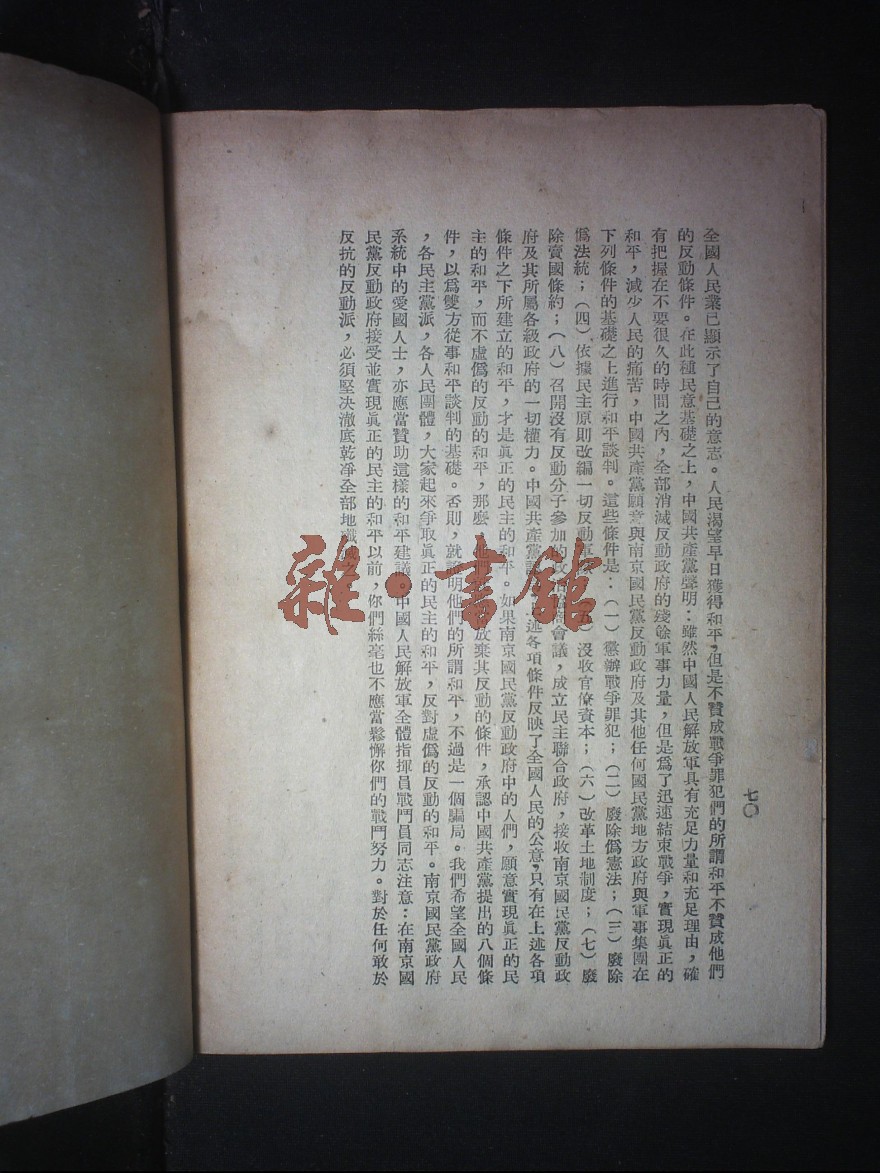 七〇
全國人民業已顯示了自己的意志。人民渴望早日獲得和平，但是不贊成戰爭罪犯們的所謂和平不贊成他們
的反動條件。在此種民意基礎之上，中國共產黨聲明：雖然中國人民解放軍具有充足力量和充足理由，確
有把握在不要很久的時間之內，全部消滅反動政府的殘餘軍事力量，但是爲了迅速結束戰爭，實現眞正的
和平，減少人民的痛苦，中國共產黨願意與南京國民黨反動政府及其他任何國民黨地方政府與軍事集團在
下列條件的基礎之上進行和平談判。這些條件是：（一）懲辦戰爭罪犯；（二）廢除僞憲法；（三）廢除
僞法統；（四）依據民主原則改編一切反動軍（五）沒收官僚資本；（六）改革土地制度；（七）廢
除賣國條約；（八）召開沒有反動分子參加的政治協商會議，成立民主聯合政府，接收南京國民黨反動政
府及其所屬各級政府的一切權力。中國共產黨認述各項條件反映了全國人民的公意，只有在上述各項
條件之下所建立的和平，才是眞正的民主的和平。如果南京國民黨反動政府中的人們，願意實現眞正的民
主的和平，而不虛僞的反動的和平，那麼他們放棄其反動的條件，承認中國共產黨提出的八個條
件，以爲雙方從事和平談判的基礎。否則，就證明他們的所謂和平，不過是一個騙局。我們希望全國人民
，各民主黨派，各人民團體，大家起來爭取眞正的民主的和平，反對虛僞的反動的和平。南京國民黨政府
系統中的愛國人士，亦應當贊助這樣的和平建議。中國人民解放軍全體指揮員戰鬥員同志注意：在南京國
民黨反動政府接受並實現眞正的民主的和平以前，你們絲毫也不應當鬆懈你們的戰鬥努力。對於任何敢於
反抗的反動派，必須堅决澈底乾凈全部地殲滅
雜·書館